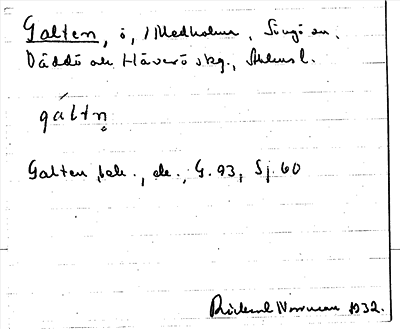 Galten, ö, i Medholma, Singö sn,
Väddö och Häverö skg., Sthms l.
galtn̥
Galten, sek., de., G. 93, Sj. 60
Norman 1932.